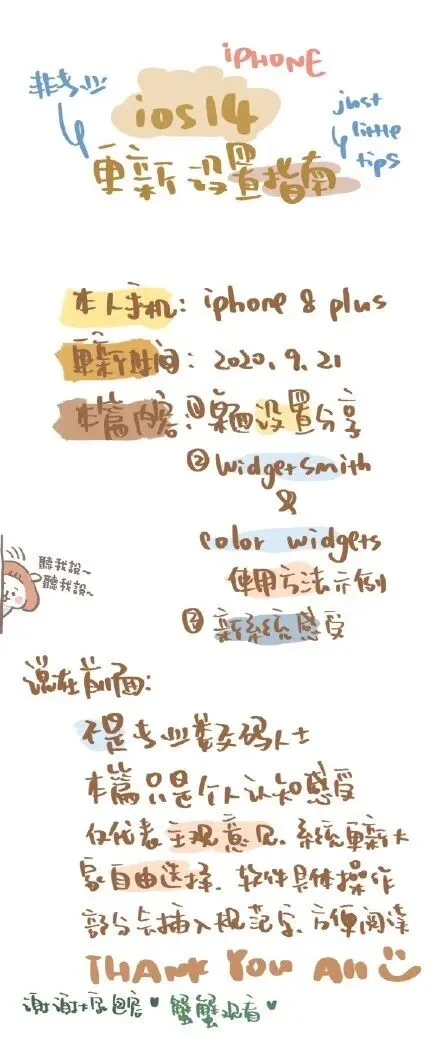 iPHONE
非专业
ios14
just
little
tips
更新设置指南
本人手机：iphone 8 plus
更新时间：2020.9.21
本篇内容：①桌面设置分享
②widgetsmith
&
color widgets
使用方法示例
聽我說~
聽我說~
③新系统感受
说在前面：
不是专业数码人士
本篇只是个人认知感受
仅代表主观意见、系统更新大
家自由选择、软件具体操作
部分会插入规范字、方便阅读
THANK YOU All
谢谢
蟹蟹观看